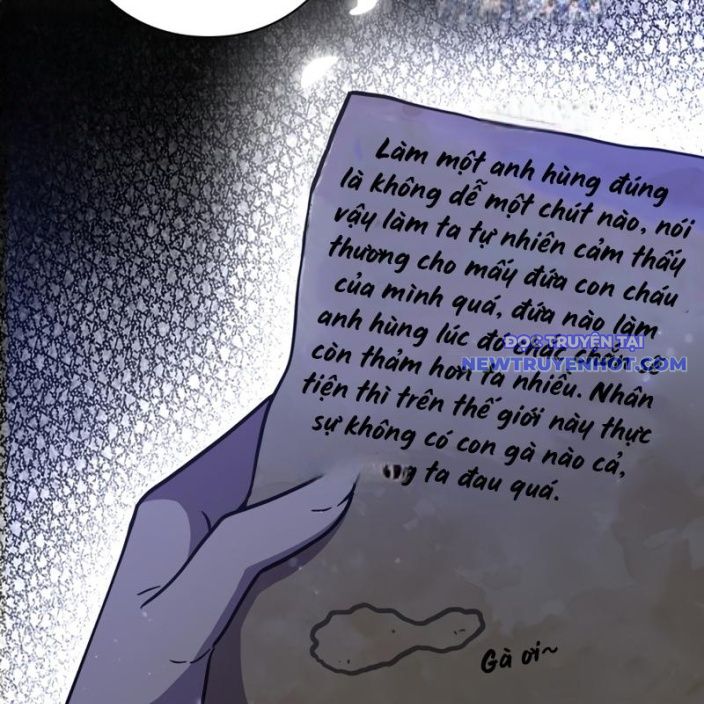 Làm một anh hùng đúng
là không dễ một chút nào, nói
vậy làm ta tự nhiên cảm thấy
thương cho mấy đứa con cháu
của mình quá, đứa nào làm
anh hùng lúc đó chắc chắn sẽ
ĐỌC TRUYỆN TẠI
NEWTRUYENHOT.COM
còn thảm hơn ta nhiều. Nhân
tiện thì trên thế giới này thực
sự không có con gà nào cả,
ta đau quá.
Gà ơi~